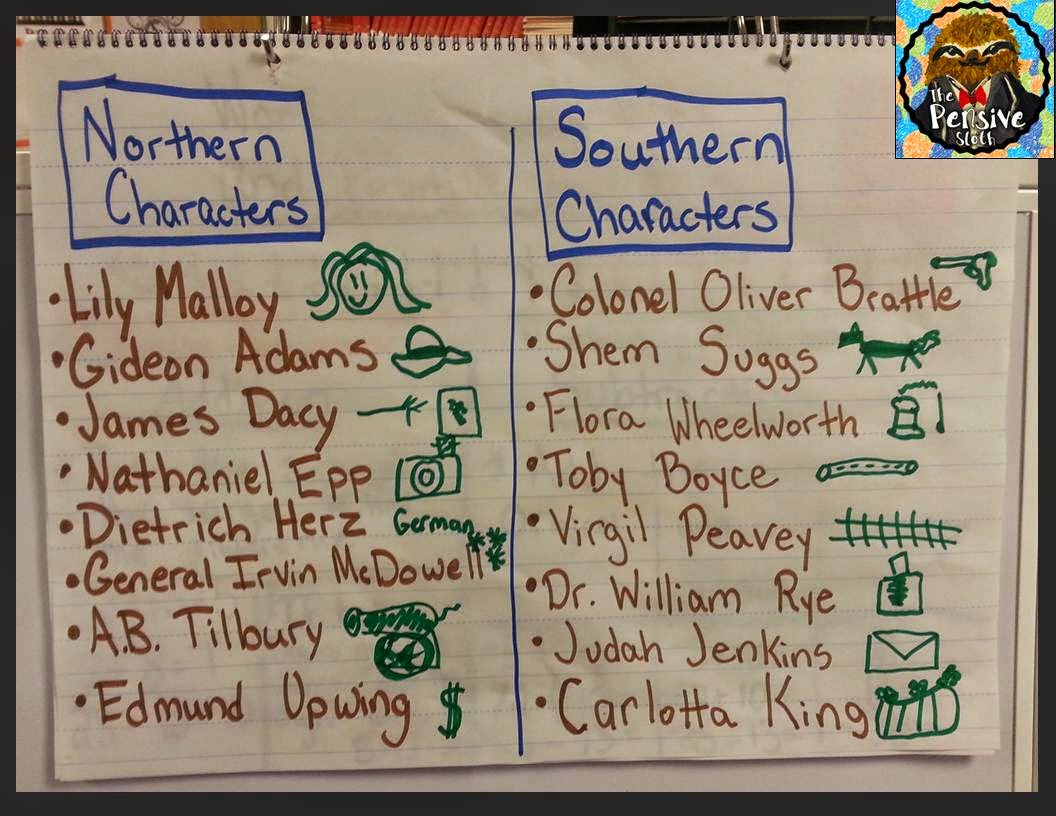 The
Pensive
Sloth
Northern
Characters
• Lily Malloy
• Gideon Adams
• James Dacy
• Nathaniel Epp
• Dietrich Herz German
• General Irvin McDowell
• A.B. Tilbury
• Edmund Upwing $
Southern
Characters
• Colonel Oliver Brattle
• Shem Suggs
• Flora Wheelworth
• Toby Boyce
• Virgil Peavey
• Dr. William Rye
• Judah Jenkins
• Carlotta King